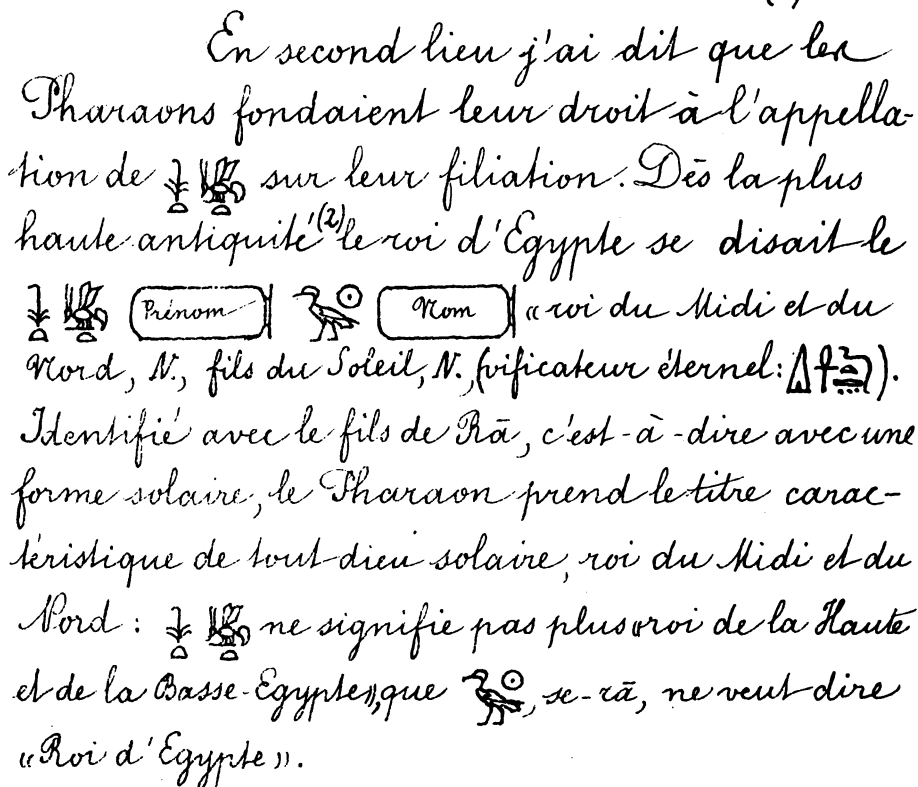 En second lieu j'ai dit que les
Pharaons fondaient leur droit à l'appella-
tion de 𓇓𓏏𓆤𓏏 sur leur filiation. Dès la plus
haute antiquité (2) le roi d'Egypte se disait le
𓇓𓏏𓆤𓏏 Prénom 𓅭𓇳 Nom « roi du Midi et du
Nord, N., fils du Soleil, N., (vificateur éternel: 𓏙𓋹𓆓𓏏𓇿).
Identifié avec le fils de Rā, c'est-à-dire avec une
forme solaire, le Pharaon prend le titre carac-
téristique de tout dieu solaire, roi du Midi et du
Nord : 𓇓𓏏𓆤𓏏 ne signifie pas plus «roi de la Haute
et de la Basse-Egypte», que 𓅭𓇳, se-rā, ne veut dire
«Roi d'Egypte».